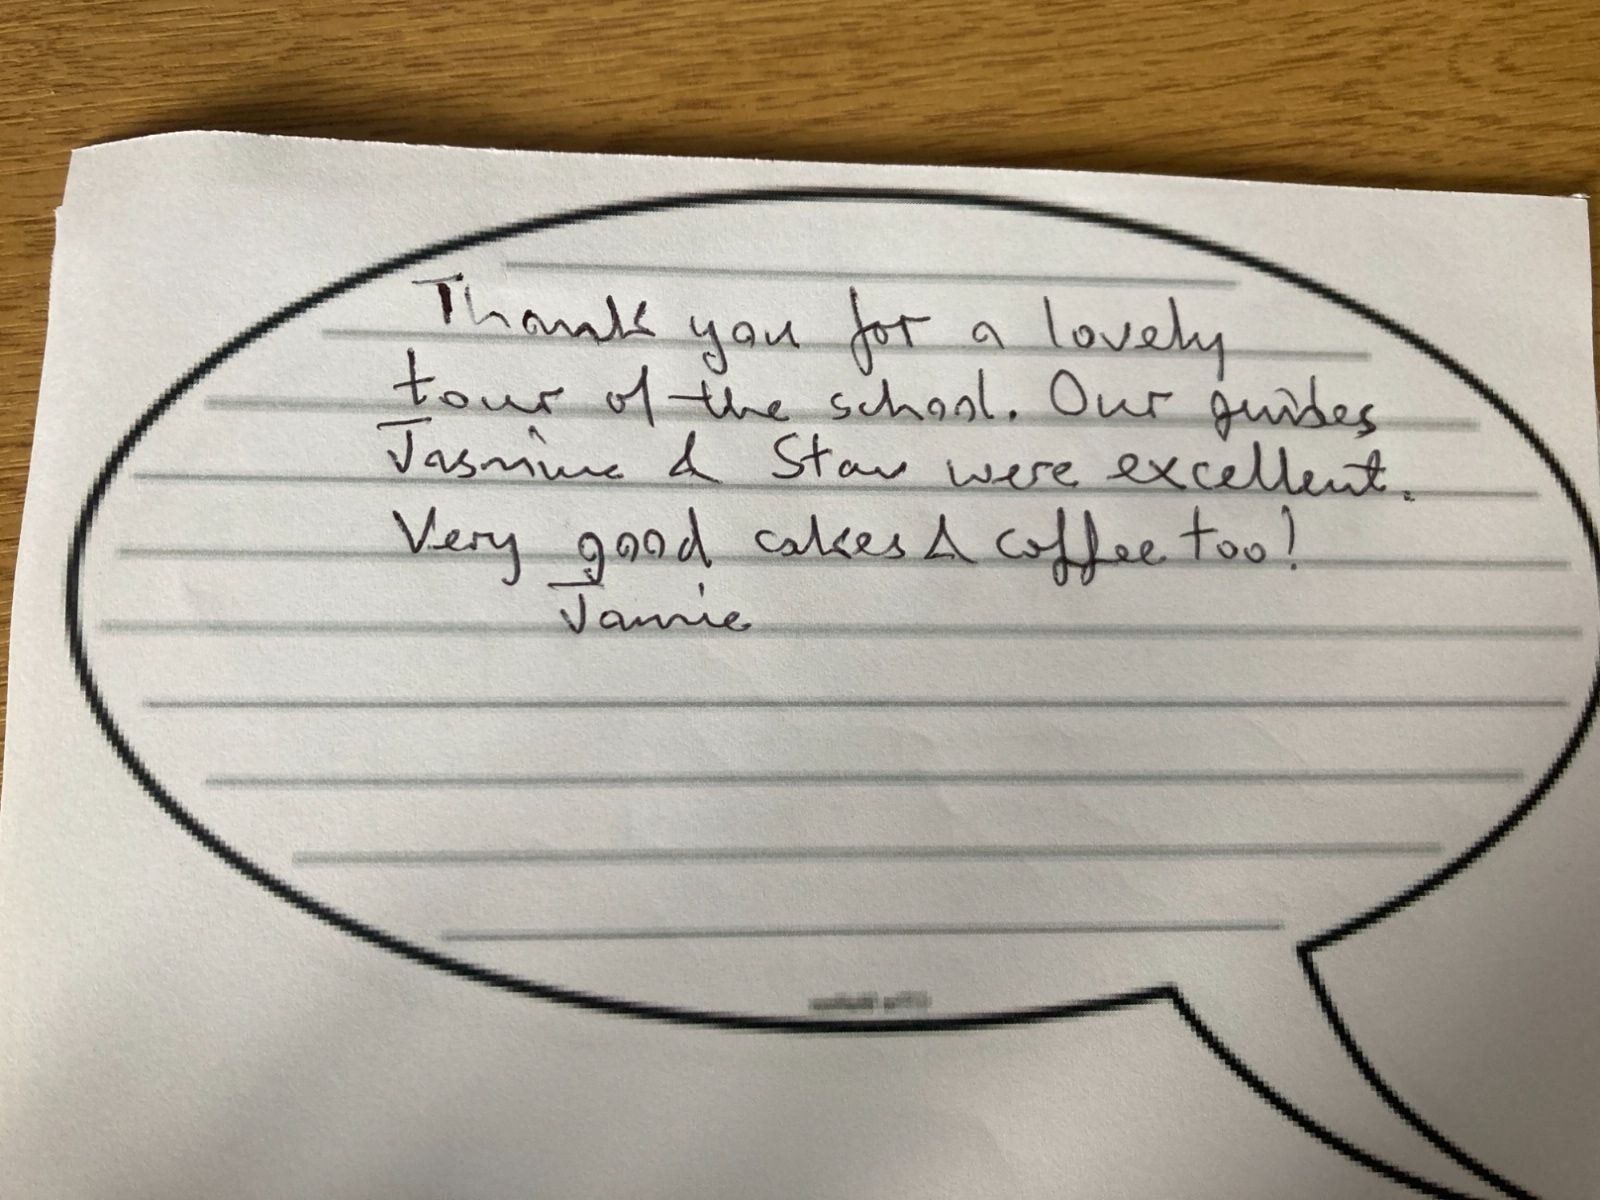 Thank you for a lovely
tour of the school. Our guides
Jasmine & Stan were excellent.
Very good cakes & coffee too!
Jamie